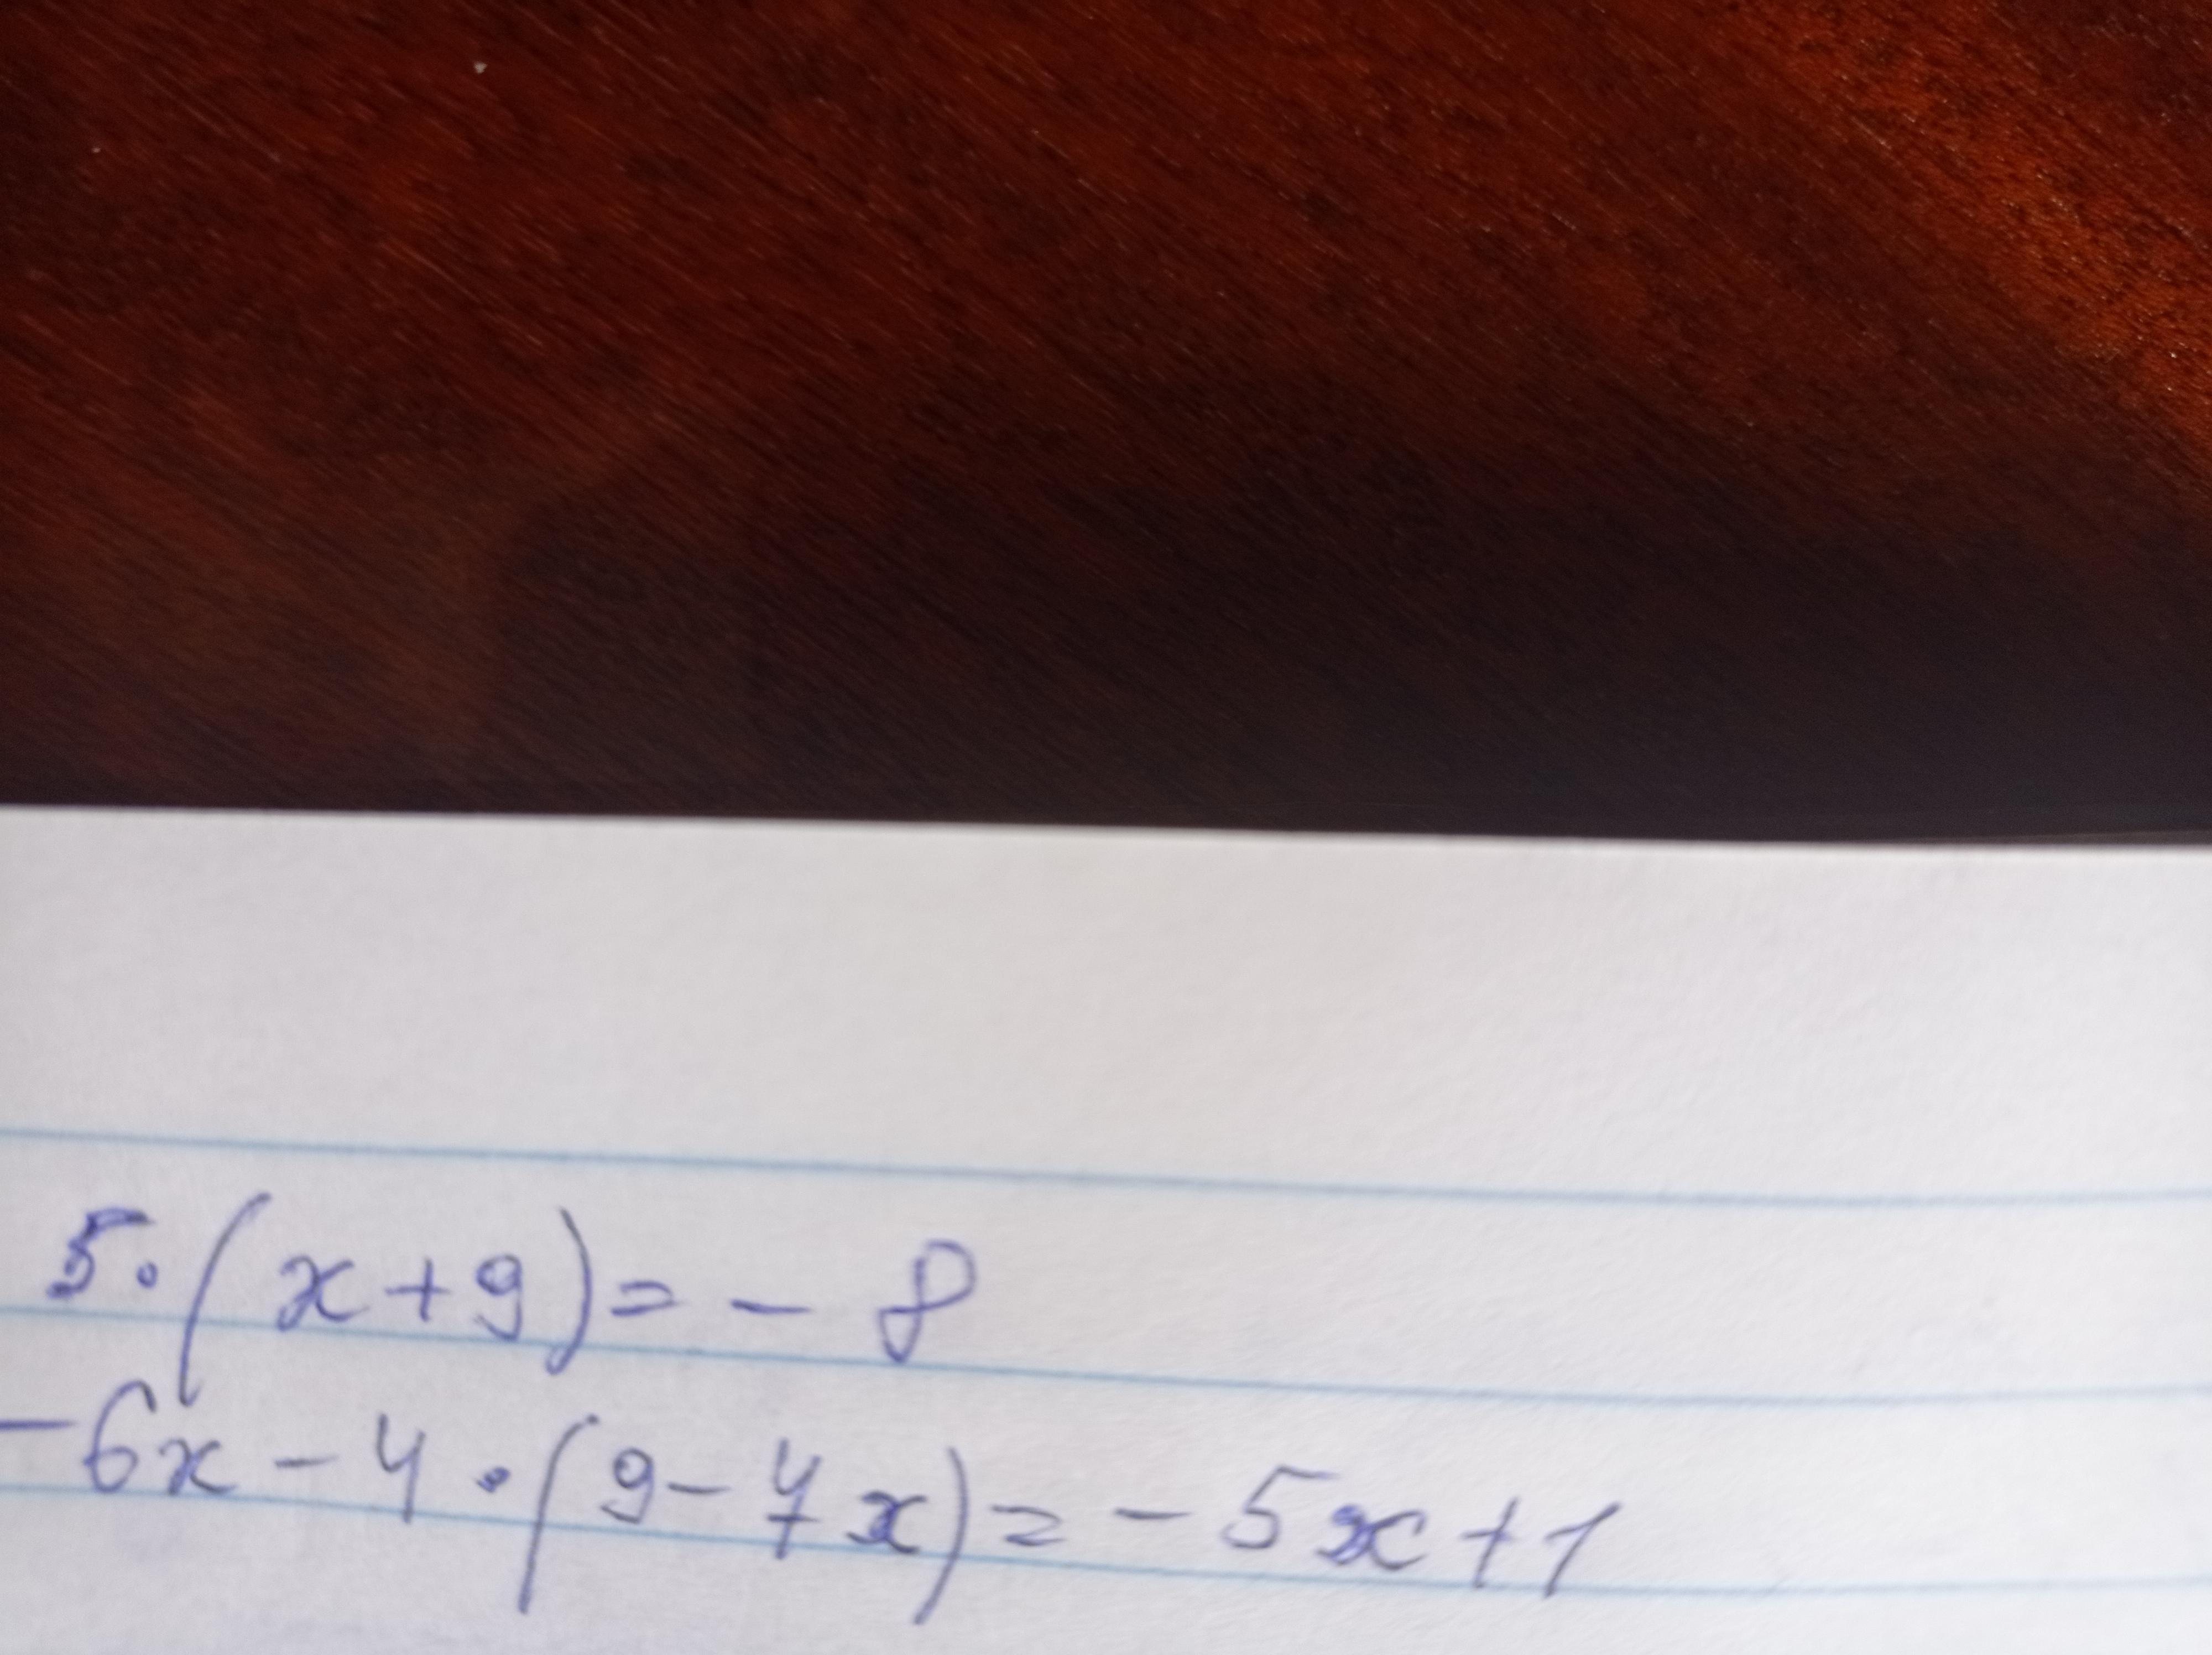 5·(x+9)=-8
-6x-4·(9-7x)=-5x+1